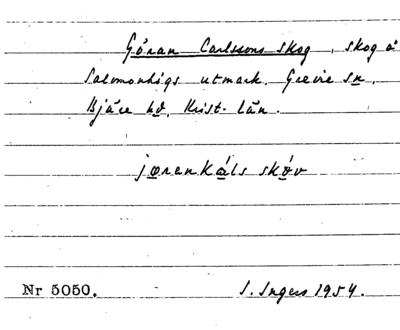 Göran Carlssons skog, skog å
Salomonhögs utmark, Grevie sn,
Bjäre hd, Krist. län.
jøren káls skóv
Nr 5050.
I. Ingers 1954.